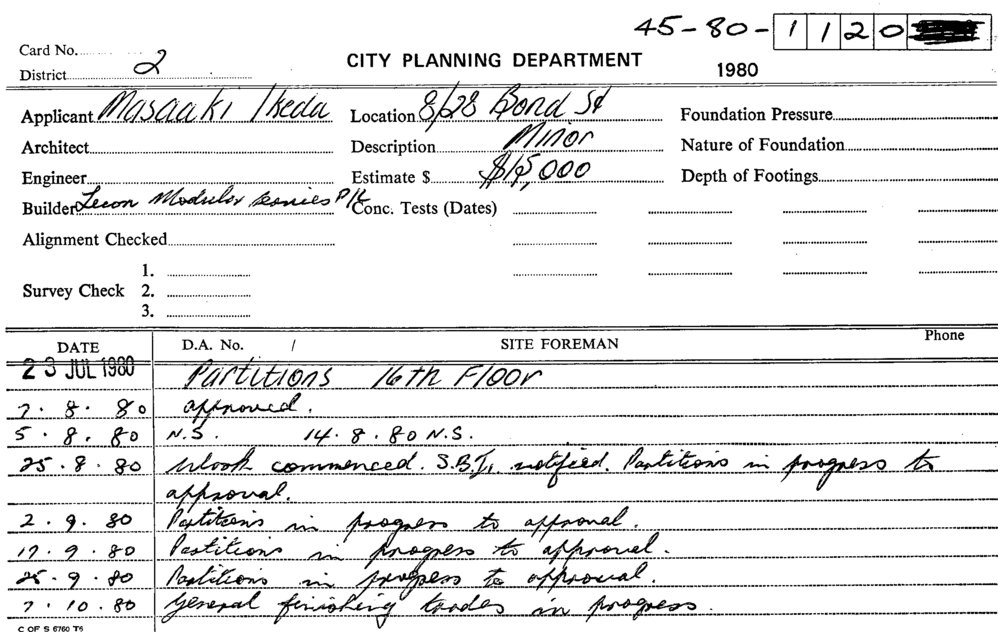 45-80-1120
Card No.
District 2
CITY PLANNING DEPARTMENT
1980
Applicant Masaaki Ikeda Location 8/28 Bond St Foundation Pressure
Architect Description Minor Nature of Foundation
Engineer Estimate $ $15,000 Depth of Footings
Builder Modular P/L Conc. Tests (Dates)
Alignment Checked
1.
Survey Check 2.
3.
DATE D.A. No. / SITE FOREMAN Phone
23 JUL 1980 Partitions 16th Floor
7.8.80 approved.
5.8.80 N.S. 14.8.80 N.S.
25.8.80 Work commenced. S.B.I. notified. Partitions in progress to
approval.
2.9.80 Partitions in progress to approval.
17.9.80 Partitions in progress to approval.
25.9.80 Partitions in progress to approval.
7.10.80 General finishing trades in progress.
C OF S 6760 T6